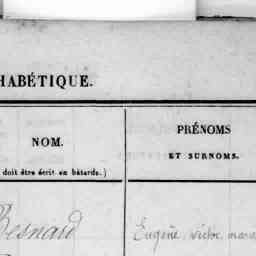 HABÉTIQUE.
NOM.
doit être écrit en bâtarde.)
PRÉNOMS
ET SURNOMS.
Besnard
Eugène, victor,